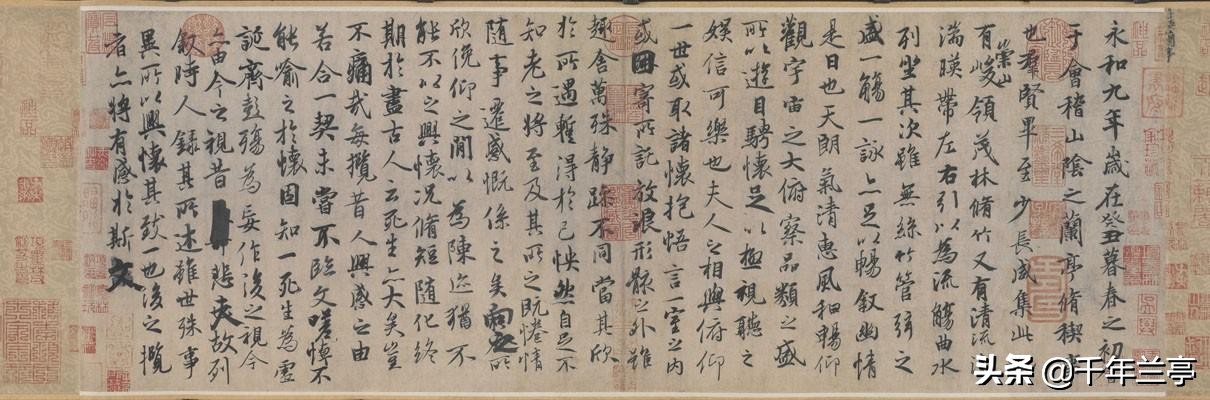 永和九年歲在癸丑暮春之初
于會稽山陰之蘭亭脩稧事
也群賢畢至少長咸集此
有崇山峻領茂林脩竹又有清流
湍暎帶左右引以為流觴曲水
列坐其次雖無絲竹管弦之
盛一觴一詠亦足以暢敘幽情
是日也天朗氣清惠風和暢仰
觀宇宙之大俯察品類之盛
所以遊目騁懷足以極視聽之
娛信可樂也夫人之相與俯仰
一世或取諸懷抱悟言一室之內
或因寄所託放浪形骸之外雖
趣舍萬殊靜躁不同當其欣
於所遇蹔得於己怏然自足不
知老之將至及其所之既惓情
隨事遷感慨係之矣向之所
欣俛仰之閒以為陳迹猶不
能不以之興懷況脩短隨化終
期於盡古人云死生亦大矣豈
不痛哉每攬昔人興感之由
若合一契未嘗不臨文嗟悼不
能喻之於懷固知一死生為虛
誕齊彭殤為妄作後之視今
亦由今之視昔悲夫故列
敘時人錄其所述雖世殊事
異所以興懷其致一也後之攬
者亦將有感於斯文
头条 @千年兰亭